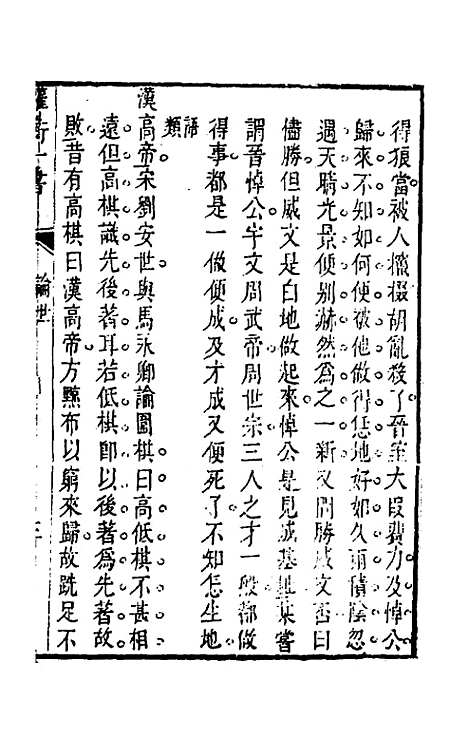 得狼當被人攛掇胡亂殺了晉室大段費力及悼公
歸來不知如何便被他做得恁地好如久雨積陰忽
遇天晴光景便別赫然為之一新又問勝威文否曰
儘勝但威文是白地做起來悼公是見成基址某嘗
謂晉悼公宇文周武帝周世宗三人之才一般都做
得事都是一做便成及才成又便死了不知怎生地
語
類
漢高帝宋劉安世與馬永卿論圍棋曰高低棋不甚相
遠但高棋識先後著耳若低棋卽以後著為先著故
敗昔有高棋曰漢高帝方黥布以窮來歸故跣足不
論世